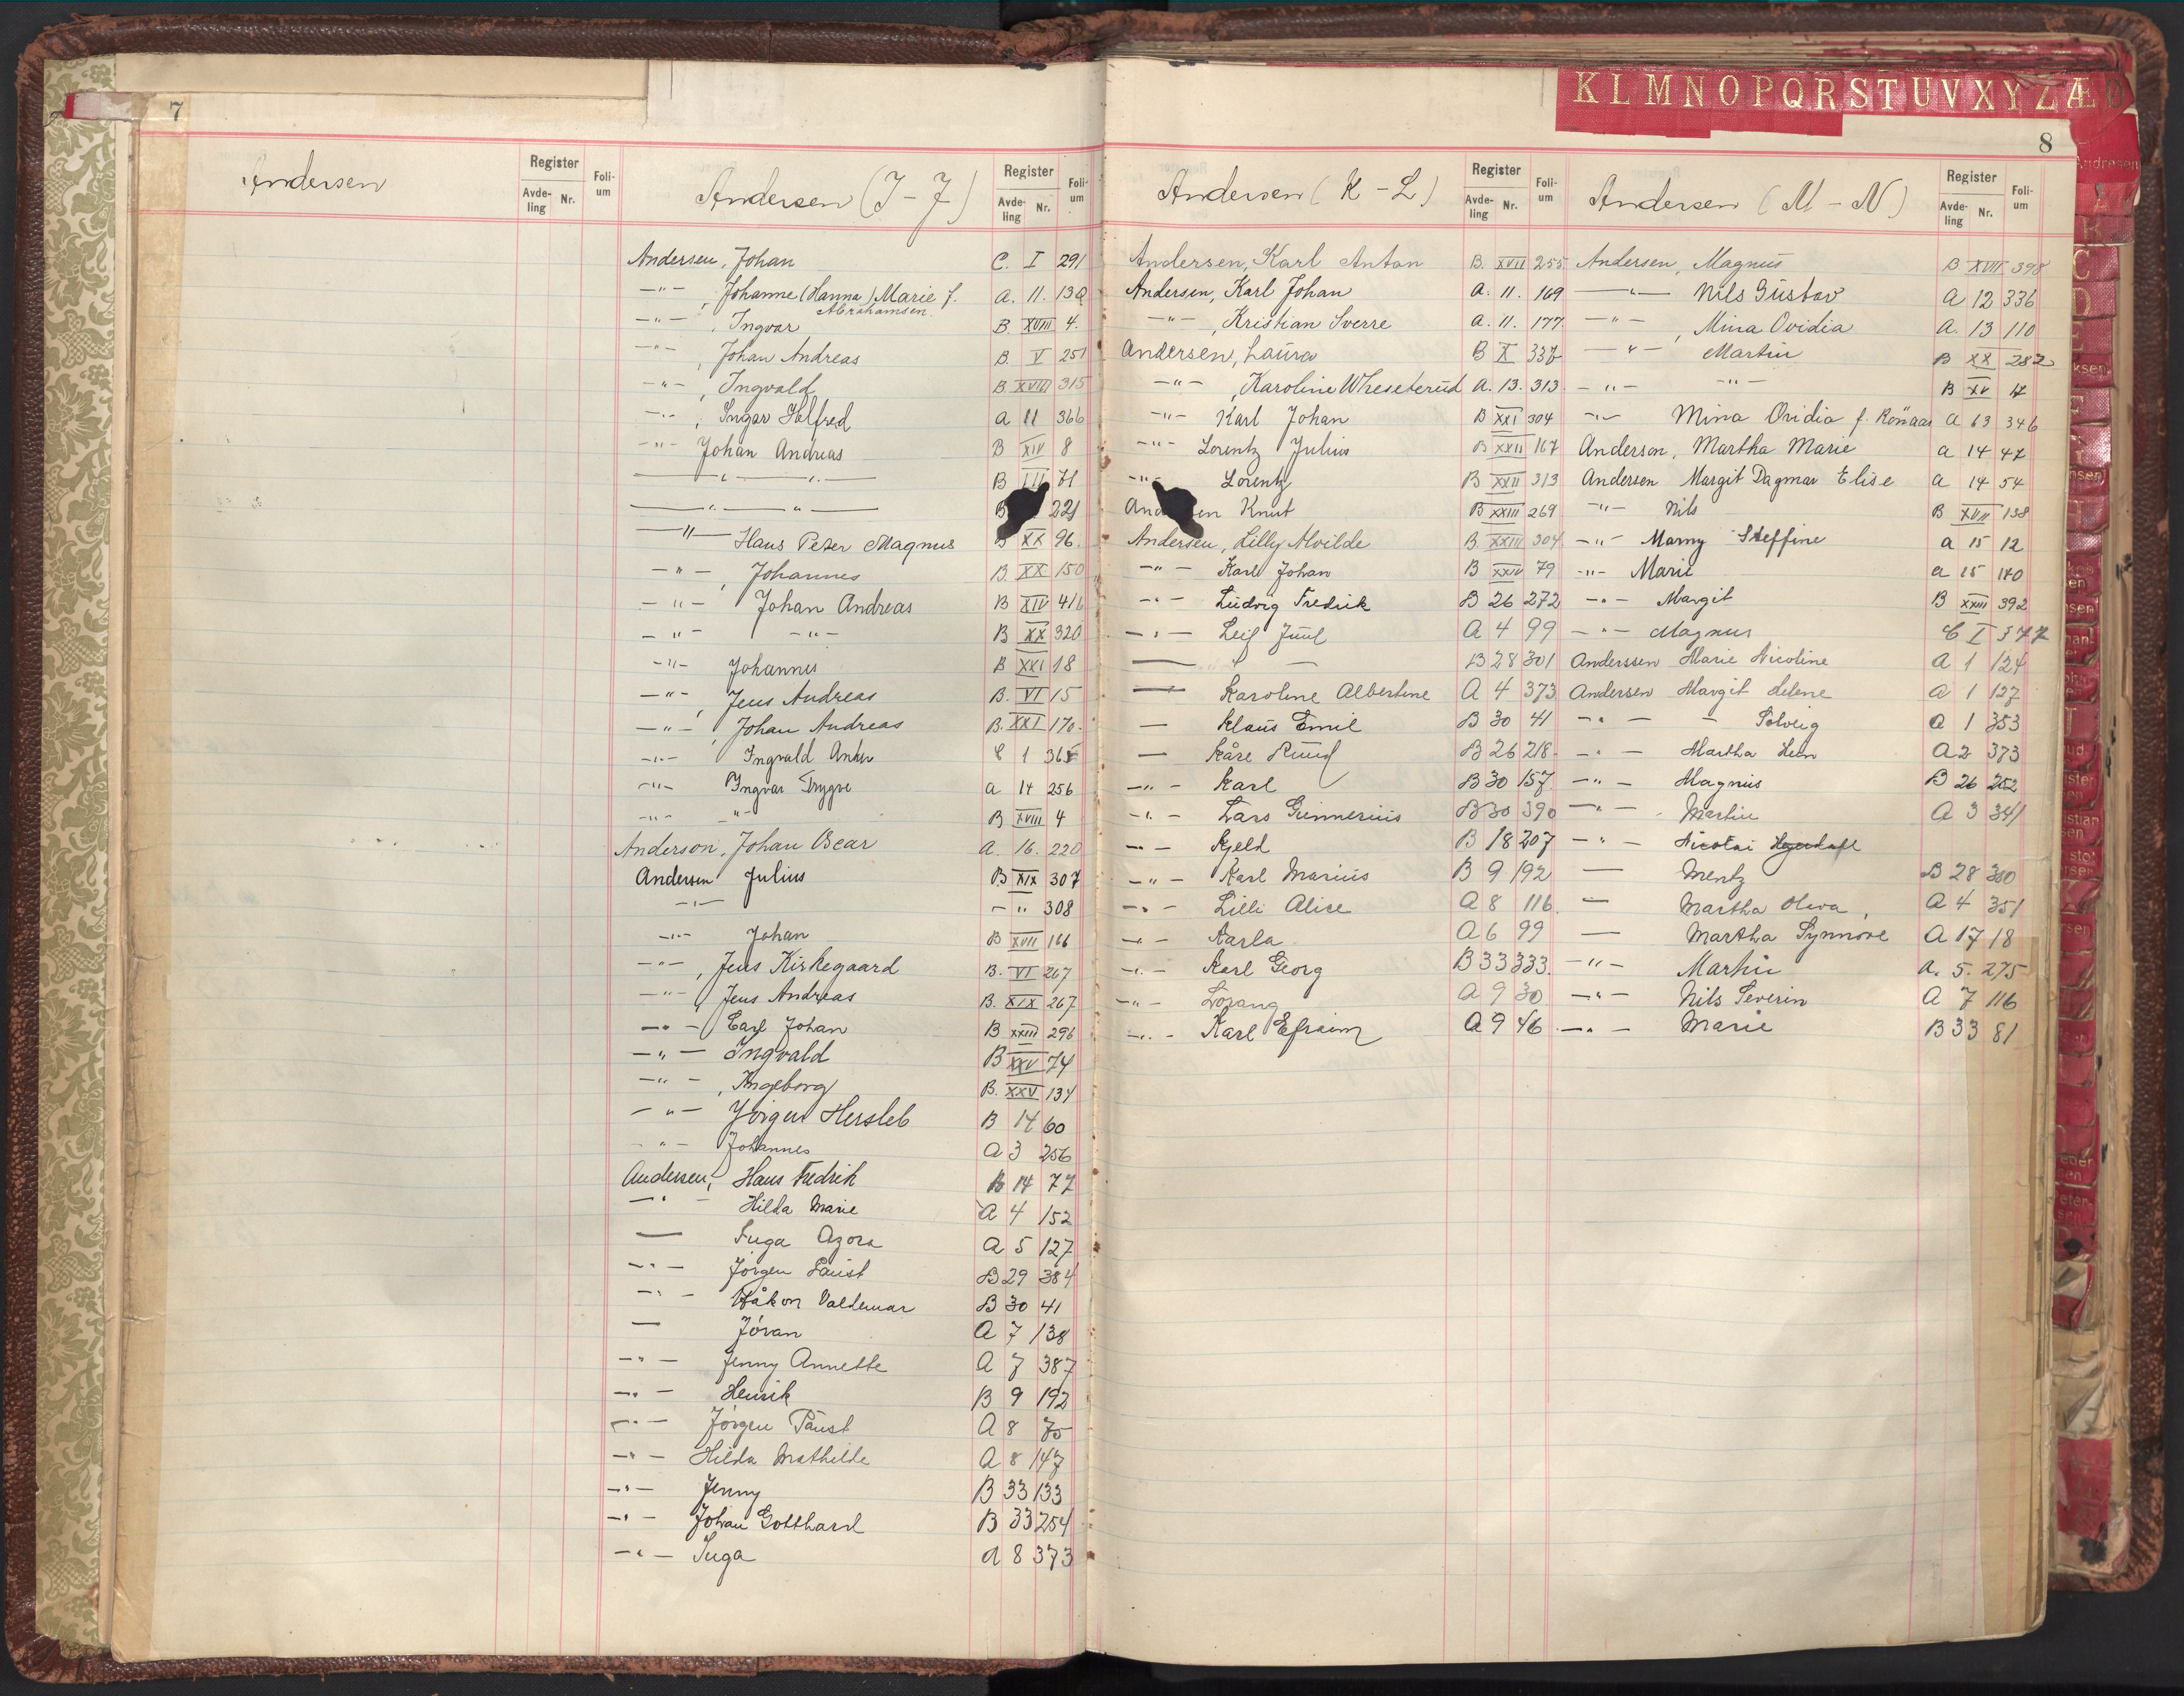 7
Andersen
Register
Avde-ling Nr. Foli-um
Andersen (I-J)
Register
Avde-ling Nr. Foli-um
Andersen, Johan C. I 291
-"- , Johanne (Hanna) Marie f. A. 11. 130
Abrahamsen
-"- , Ingvar B XVIII 4.
-"- , Johan Andreas B V 251
-"- , Ingvald B XVIII 315
-"- , Ingar Halfred A 11 366
-"- Johan Andreas B XIV 8
-"- -"- B III 71
-"- -"- B 221
-"- Hans Peter Magnus B XX 96.
-"- , Johannes B XX 150
-"- Johan Andreas B XIV 416
-"- -"- B XX 320
-"- Johannes B XXI 18
-"- , Jens Andreas B. VI 15
-"- , Johan Andreas B. XXI 170.
-"- Ingvald Anker C 1 365
-"- Ingvar Trygve a 14 256
-"- -"- B XVIII 4
Anderson, Johan Oscar A. 16. 220
Andersen Julius B XIX 307
-"- - " 308
-"- Johan B XVII 166
-"- , Jens Kirkegaard B. VI 267
-"- , Jens Andreas B. XIX 267
-"- Carl Johan B XXIII 296
-"- Ingvald B XXV 74
-"- , Ingeborg B. XXV 134
-"- Jörgen Hersleb B 14 60
-"- Johannes A 3 256
Andersen, Hans Fredrik B 14 77
-"- Hilda Marie A 4 152
— Inga Agora A 5 127
-"- Jörgen Faust B 29 384
-"- Håkon Valdemar B 30 41
— Jóvan A 7 138
-"- Jenny Annette A 7 387
-"- Henrik B 9 192
-"- Jörgen Faust A 8 75
-"- Hilda Mathilde A 8 147
-"- Jenny B 33 133
-"- Johan Gotthard B 33 254
-"- Inga A 8 373
K L M N O P Q R S T U V X Y Z Æ Ø
8
Andersen (K-L)
Register
Avde-ling Nr. Foli-um
Andersen, Karl Anton B. XVII 255
Andersen, Karl Johan A. 11. 169
-"- , Kristian Sverre A. 11. 177
Andersen, Laura B X 337
-"- , Karoline Wheseterud A. 13. 313.
-"- Karl Johan B XXI 304
-"- Lorentz Julius B XXII 167
-"- Lorentz B XXII 313
Andersen Knut B XXIII 269
Andersen, Lilly Alvilde B. XXIII 304
-"- Karl Johan B XXIV 79
-"- Ludvig Fredrik B 26 272
-"- Leif Juul A 4 99
— " — B 28 301
— Karoline Albertine A 4 373
— Klaus Emil B 30 41
— Kåre Ruud B 26 218
-"- Karl B 30 157
-"- Lars Gunnerius B 30 390
-"- Kjeld B 18 207
-"- Karl Marius B 9 192
-"- Lilli Alice A 8 116
-"- Karla A 6 99
-"- Karl Georg B 33 333.
-"- Lorang A 9 30
-"- Karl Efraim A 9 46
Andersen (M-N)
Register
Avde-ling Nr. Foli-um
Andersen, Magnus B XVII 398
-"- Nils Gustav A 12 336
-"- , Mina Ovidia A. 13 110
-"- Martin B XX 282
-"- -"- B XV 17
-"- Mina Ovidia f. Rønaas A 13 346
Anderson, Martha Marie a 14 47
Andersen Margit Dagmar Elise a 14 54
-"- Nils B XVII 138
-"- Marny Steffine a 15 12
-"- Marie a 15 140
-"- Margit B XXIII 392
-"- Magnus C I 377
Anderssen Marie Nicoline A 1 124
Andersen Margit Helene A 1 127
-"- - Solveig A 1 353
-"- Martha Hein A 2 373
-"- Magnus B 26 252
-"- Martin A 3 341
-"- Nicolai
— Mentz B 28 300
— Martha Oliva, A 4 351
— Martha Synnøve A 17 18
-"- Martin A. 5. 275
-"- Nils Severin A 7 116
-"- Marie B 33 81